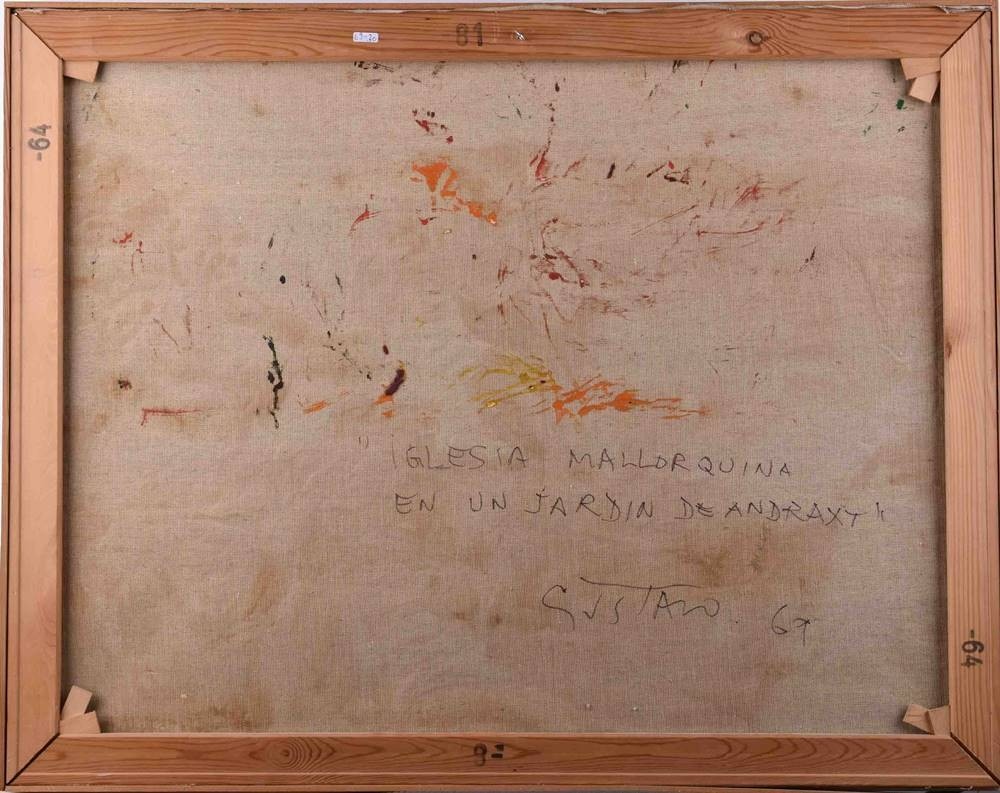 81
-64
"IGLESIA MALLORQUINA
EN UN JARDIN DE ANDRAXT"
GUSTAVO. 67
-64